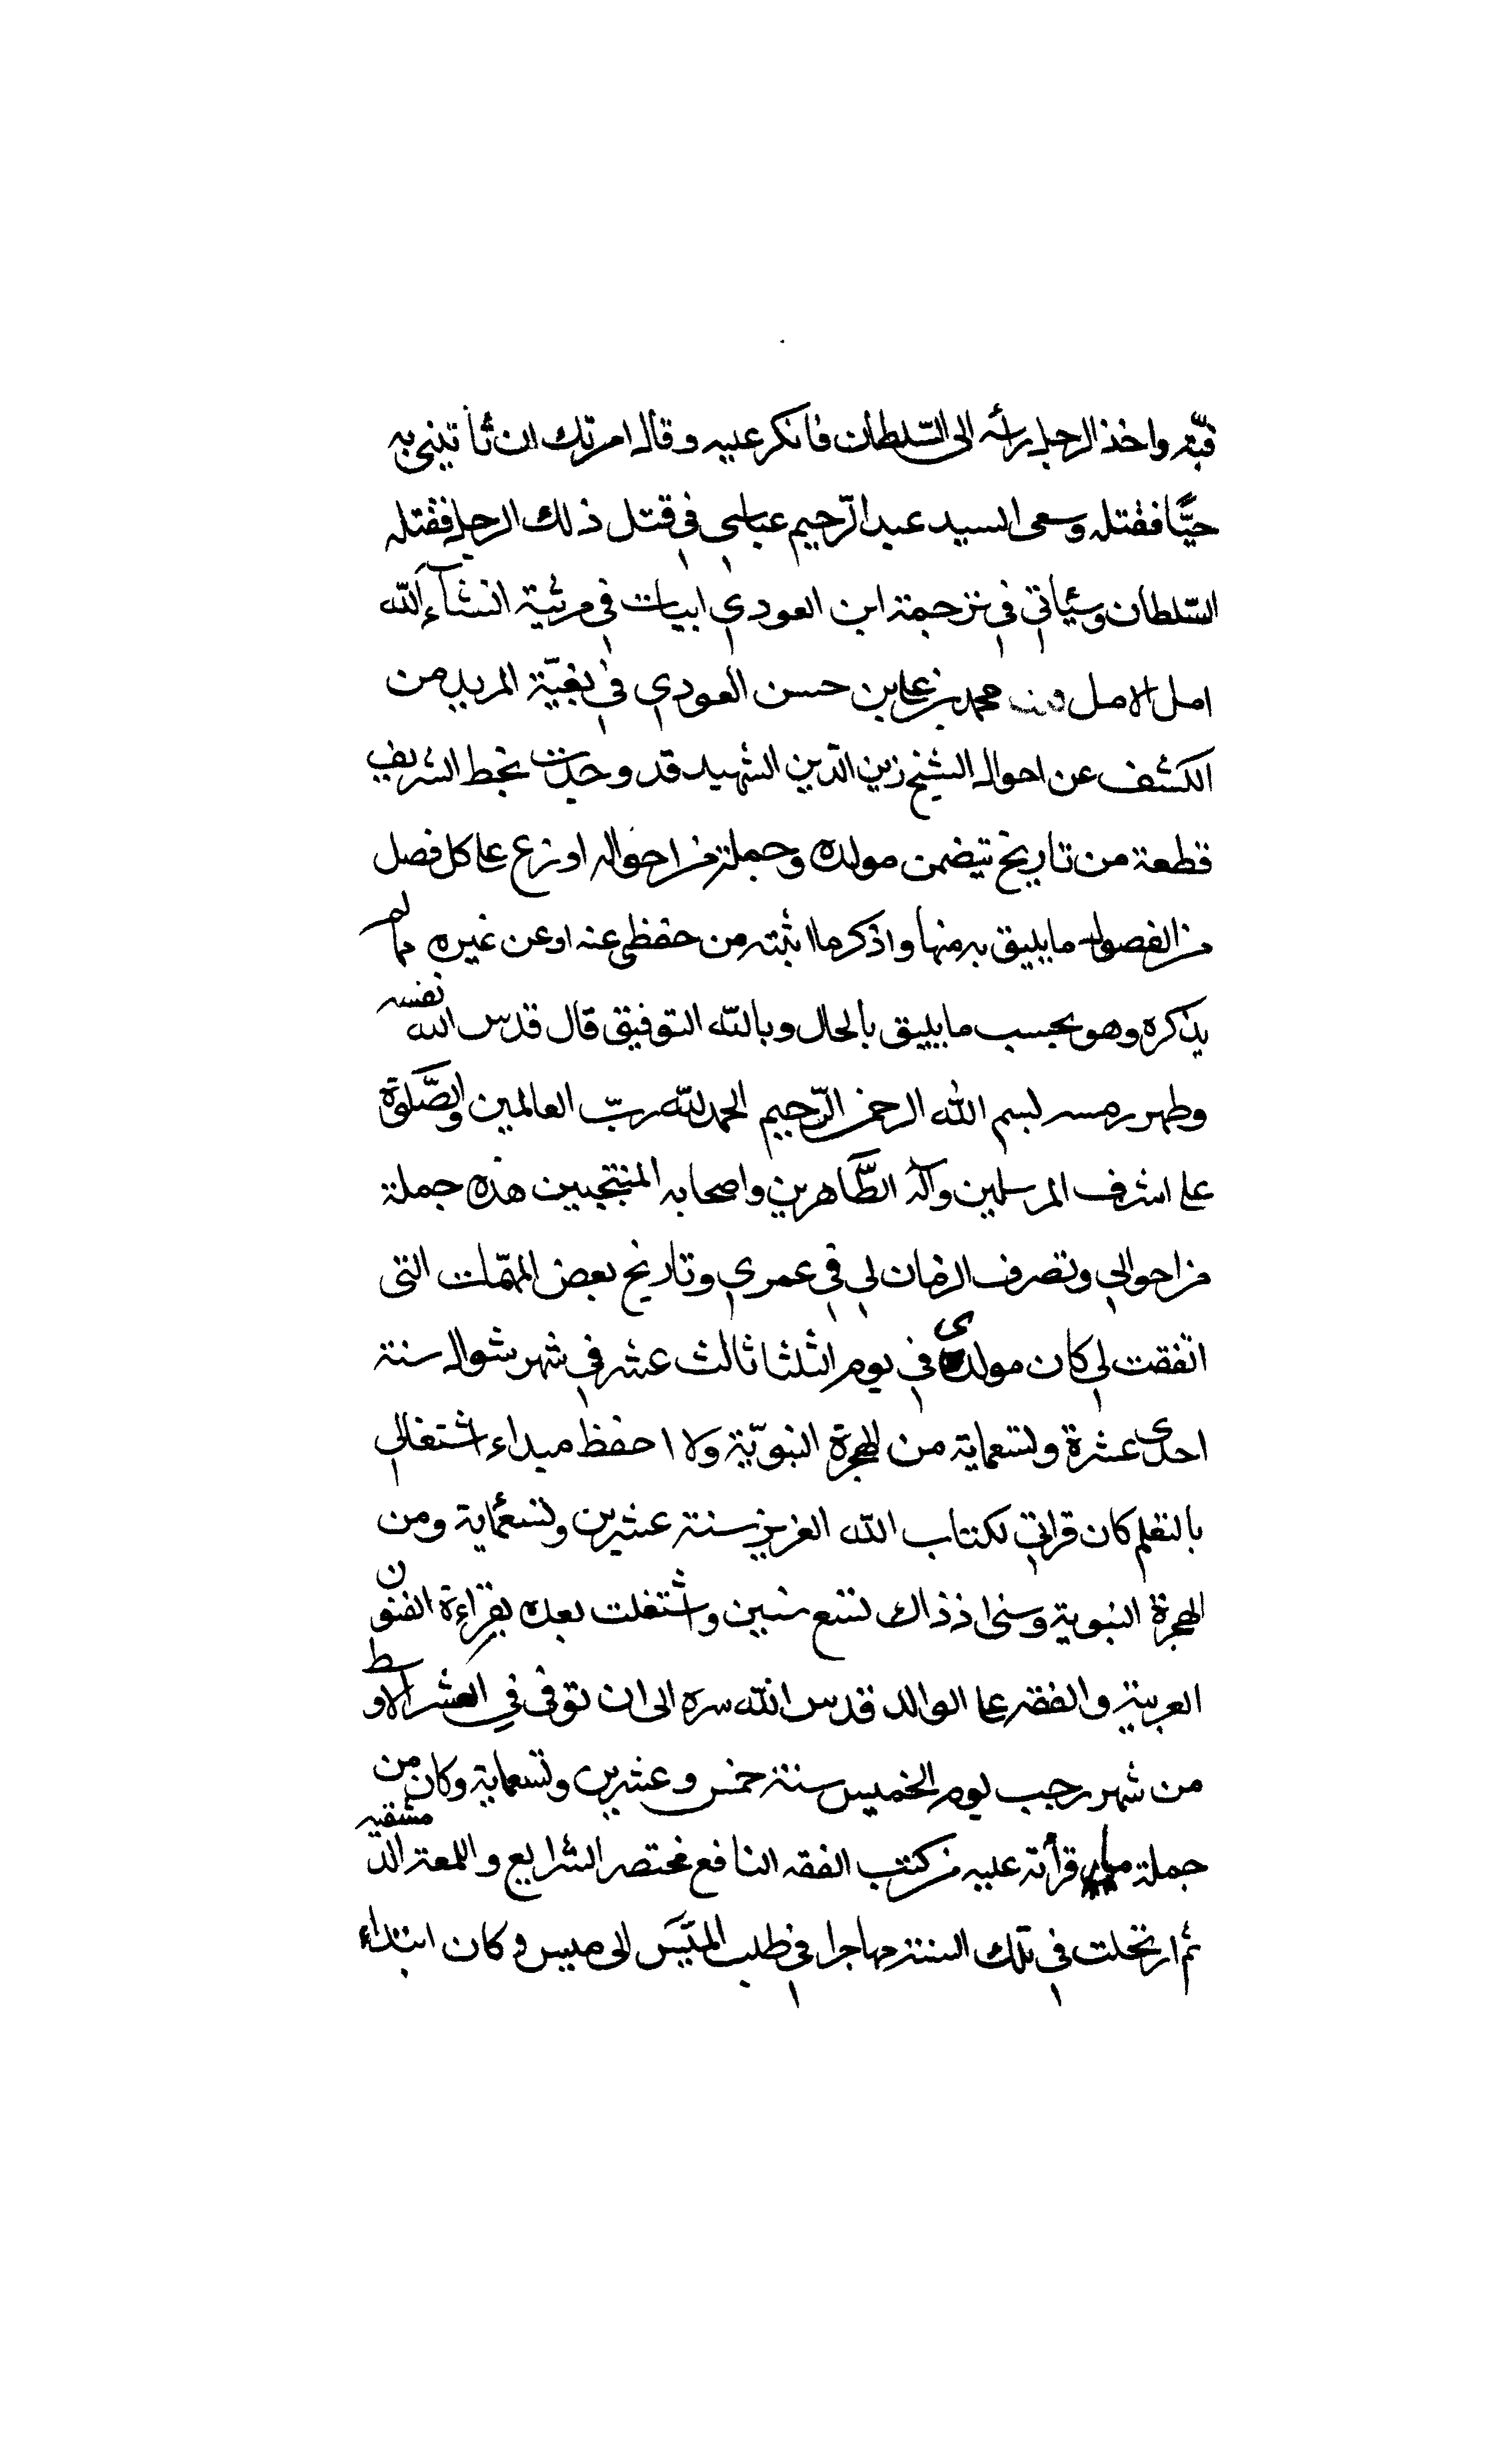 قبّة واخذ الرجل رأسه الى السّلطان فانكر عليه وقال امرتك ان تأتيني به
حيًّا فقتله وسعى السيد عبد الرّحيم عباسي في قتل ذلك الرجل فقتله
السّلطان وسيأتي في ترجمة ابن العودي ابيات في مرثية انشآء اللّه
امل الامل محمد بن علي بن حسن العودي في بغيّة المريد من
الكشف عن احوال الشيخ زين الدّين الشهيد قد وجدت بخط الشريف
قطعة من تاريخ تتضمن مولده وجملة من احواله اوزع على كل فصل
من الفصول ما يليق به منها واذكر ما اثبته من حفظي عنه او عن غيره مما لم
يذكره وهو بحسب ما يليق بالحال وباللّه التوفيق قال قدس الله نفسه
وطهر رمسه بسم الله الرحمن الرّحيم الحمد للّه ربّ العالمين والصَّلوة
على اشرف المرسلين وآله الطَّاهرين واصحابه المنتجبين هذه جملة
من احوالي وتصرف الزمان لي في عمري وتاريخ بعض المهمّات التى
اتفقت لي كان مولدي في يوم الثلثا ثالث عشر في شهر شوال سنة
احدى عشرة وتسعماية من الهجرة النبويّة ولا احفظ مبداء اشتغالي
بالتعلم كان قراتي لكتاب اللّه العزيز سنة عشرين وتسعماية ومن
الهجرة النبوية وسنى اذذاك تسع سنين واشتغلت بعده بقراءة الفنون
العربية والفقه على الوالد قدس اللّه سره الى ان توفى في العشر الاوسط
من شهر رجب يوم الخميس سنة خمس وعشرين وتسعماية وكان من
جملة ما قرأته عليه من كتب الفقه النافع مختصر الشرايع واللمعة الدمشقيه
ثم ارتحلت في تلك السنة مهاجرا في طلب الى ميس وكان ابتداء